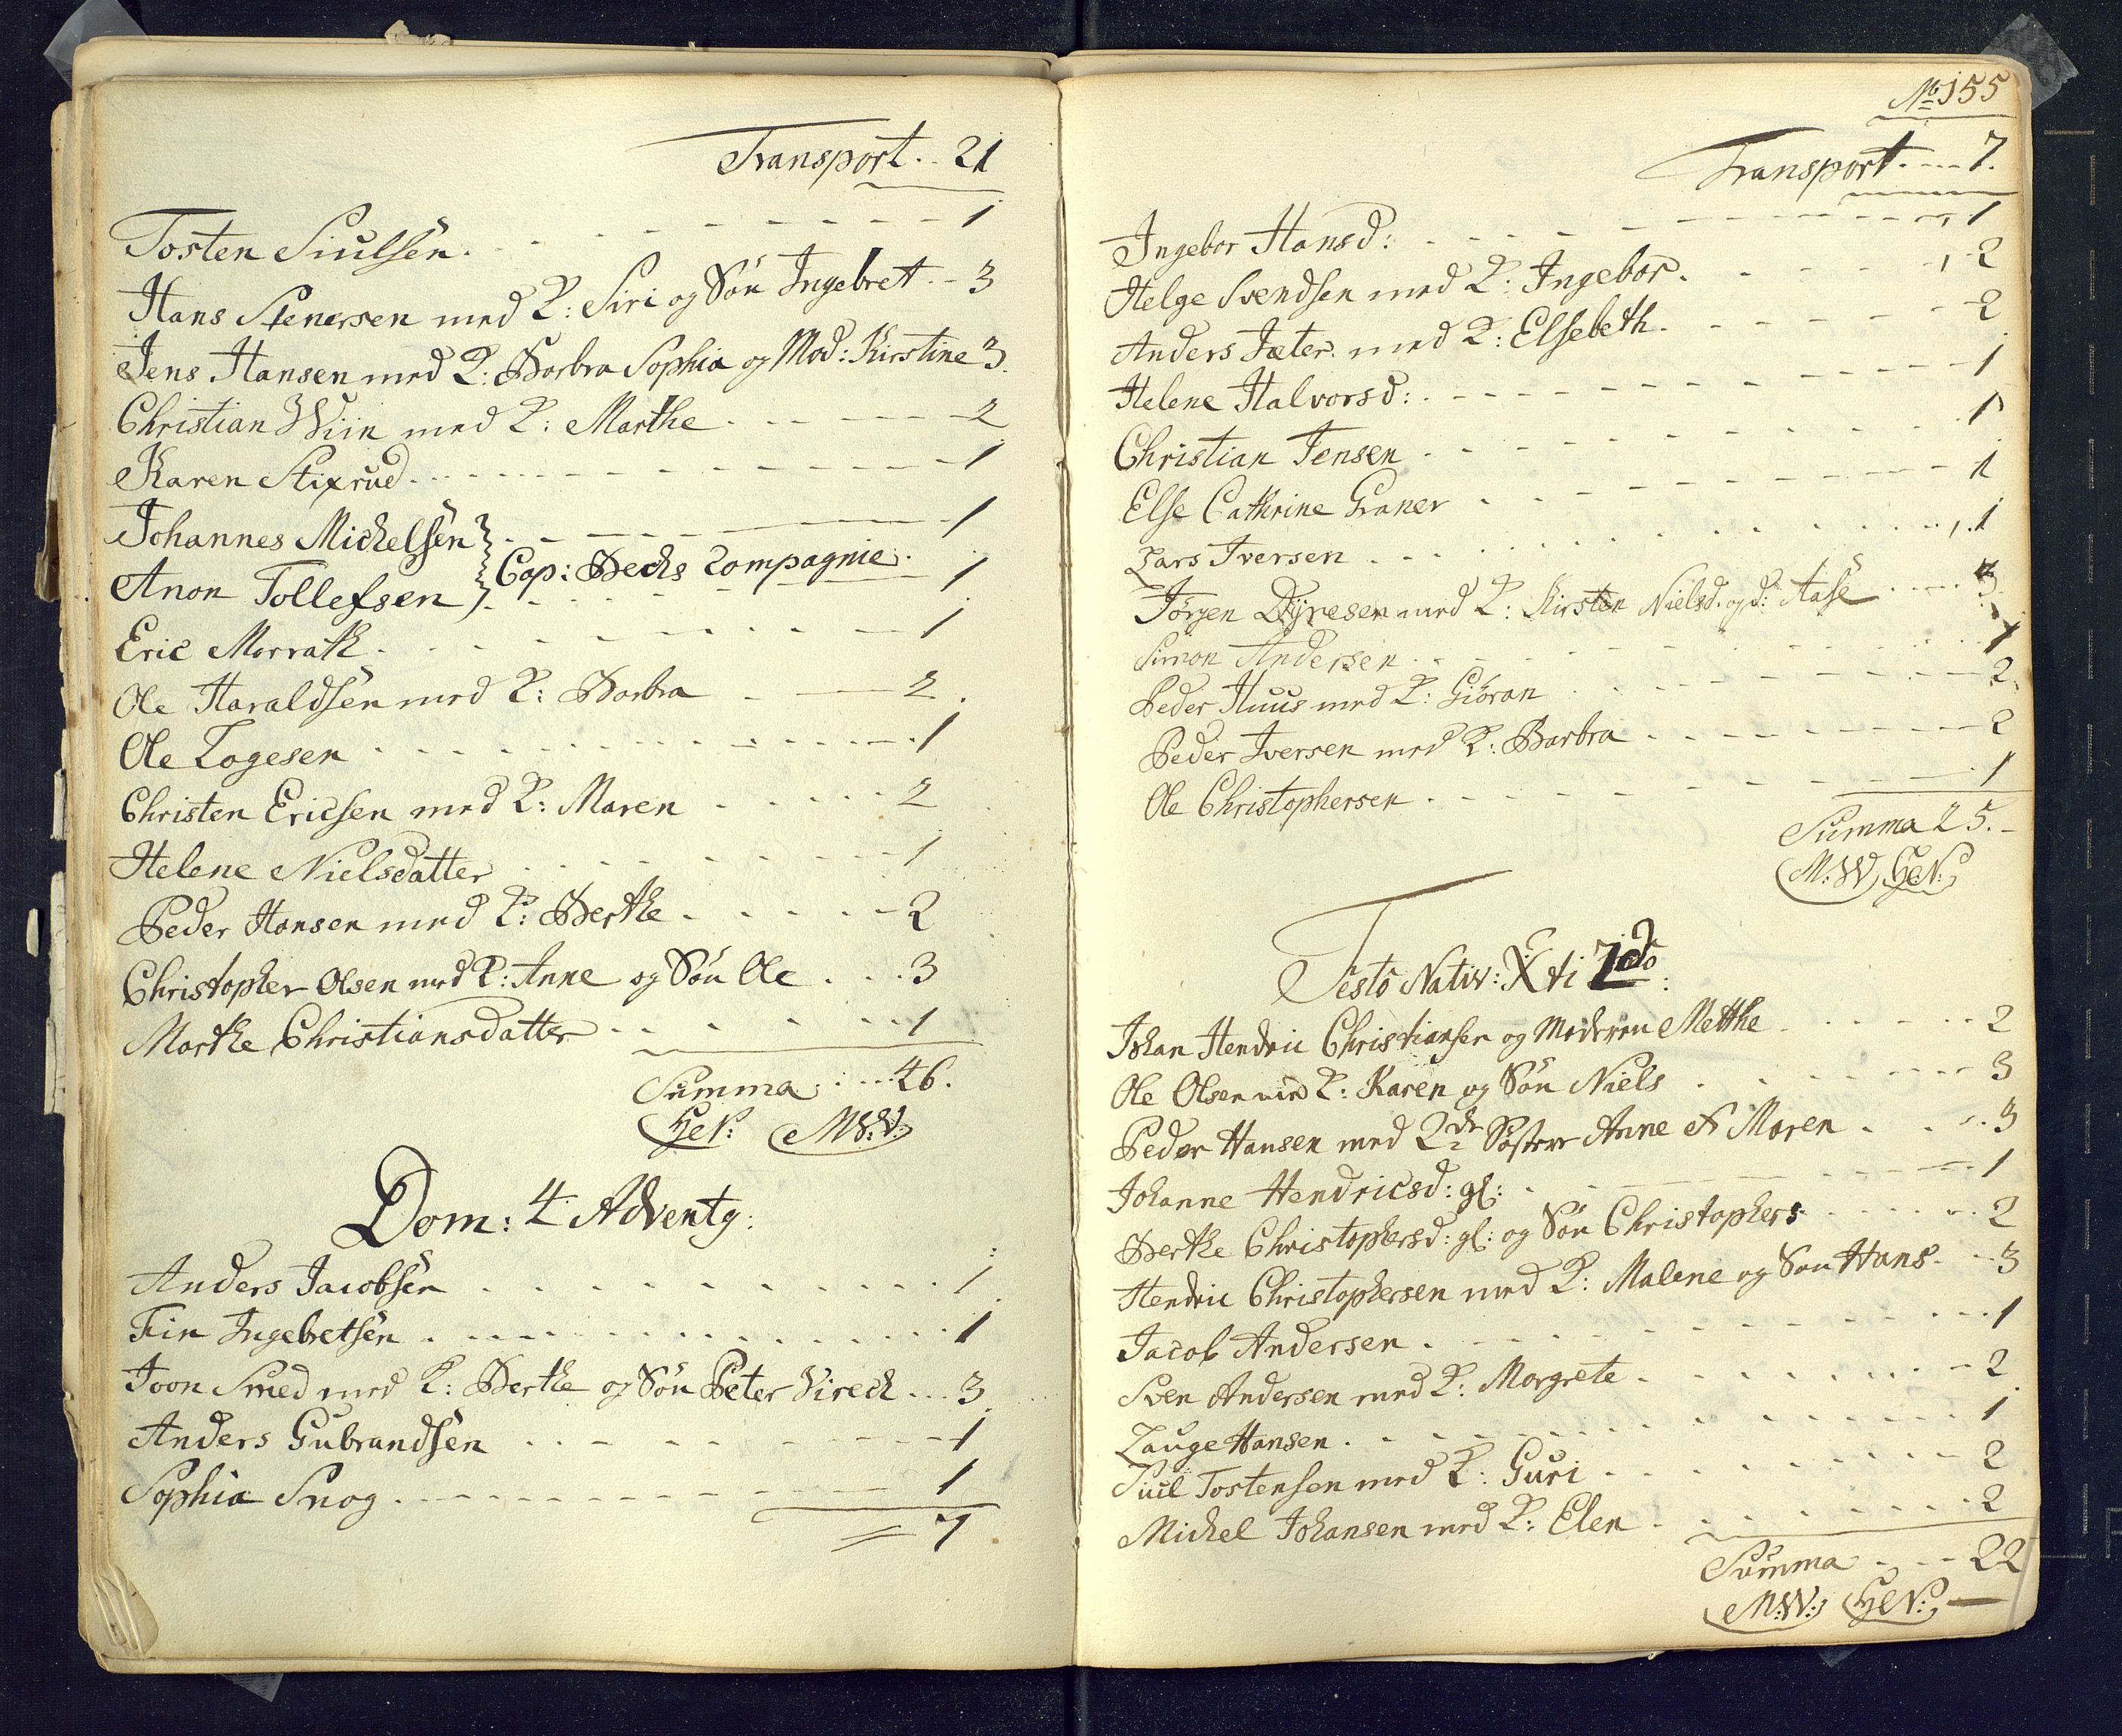 Transport. - 21
Tosten Siulsen. - - - 1
Hans Stenersen med K: Siri og Søn Ingebret - - 3
Jens Hansen med K: Barbra Sophia og Mod: Kirstine 3.
Christian Wiin med K: Marthe - - - 2
Karen Stixrud - - - 1
Johannes Michelsen - - - 1
Cap: Becks Compagnie.
Anon Tollefsen - - - 1
Eric Morrath - - - 1
Ole Haraldsen med K: Barbra - - 2.
Ole Togesen - - - 1
Christen Ericsen med K: Maren - - - 2
Helene Nielsdatter - - - 1
Peder Hansen med K: Berthe - - - 2
Christopher Olsen med K: Anne og Søn Ole . . . 3
Marthe Christiansdatter - - - 1
Summa . . . 46.
HCN: MW:
Dom: 4 Adventg:
Anders Jacobsen - - - 1
Fin Ingebretsen - - - 1
Joon Smed med K: Berthe og Søn Peter Vireck ... 3
Anders Gubrandsen - - - 1
Sophia Snog - - - 1
= 7
No 155
Transport. - - - 7.
Ingebor Hansd: - - - 1
Helge Svendsen med K: Ingebor. - - - 2
Anders Jæter. med K: Elsebeth. - - - 2
Helene Halvorsd: - - - 1
Christian Jensen - - - 1
Else Cathrine Graner - - - 1
Lars Iversen - - - 1
Jørgen Dyresen med K: Kirsten Nielsd. og d: Aase - - - 3
Simon Andersen - - - 1
Peder Huus med K: Giøran - - - 2.
Peder Iversen med K: Barbra - - - 2
Ole Christophersen - - - 1
Summa 25. -
M:W: HCN:
Festo Nativ: Xti
Johan Hendric Christiansen og Moderen Metthe - - - 2
Ole Olsen med K: Karen og Søn Niels - - - 3
Peder Hansen med 2de Søstere Anne & Maren - - 3
Johanne Hendricsd: gl: - - - 1
Berthe Christophersd: gl: og Søn Christophers - - - 2
Hendric Christophersen med K: Malene og Søn Hans - - 3
Jacob Andersen - - - 1
Sven Andersen med K: Margrete - - - 2
Lauge Hansen - - - 1
Siul Tostensen med K: Guri - - - 2
Michel Johansen med K: Elen - - - 2
Summa - - - 22
M:W: HCN: —